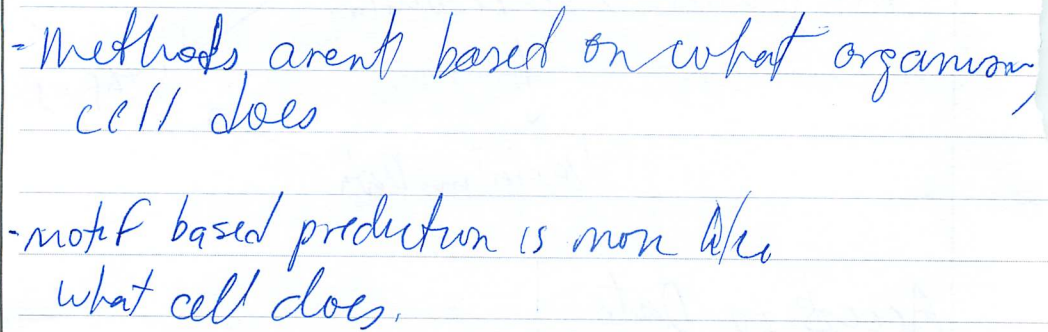 - Methods arent based on what organism,
cell does
- motif based prediction is more like
what cell does.